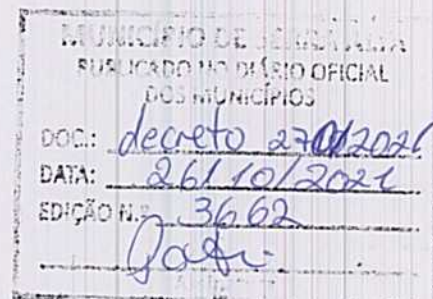 MUNICÍPIO DE SERRA ALTA
PUBLICADO NO DIÁRIO OFICIAL
DOS MUNICÍPIOS
DOC.: decreto
DATA: 26/10/2021
EDIÇÃO N.º 3662